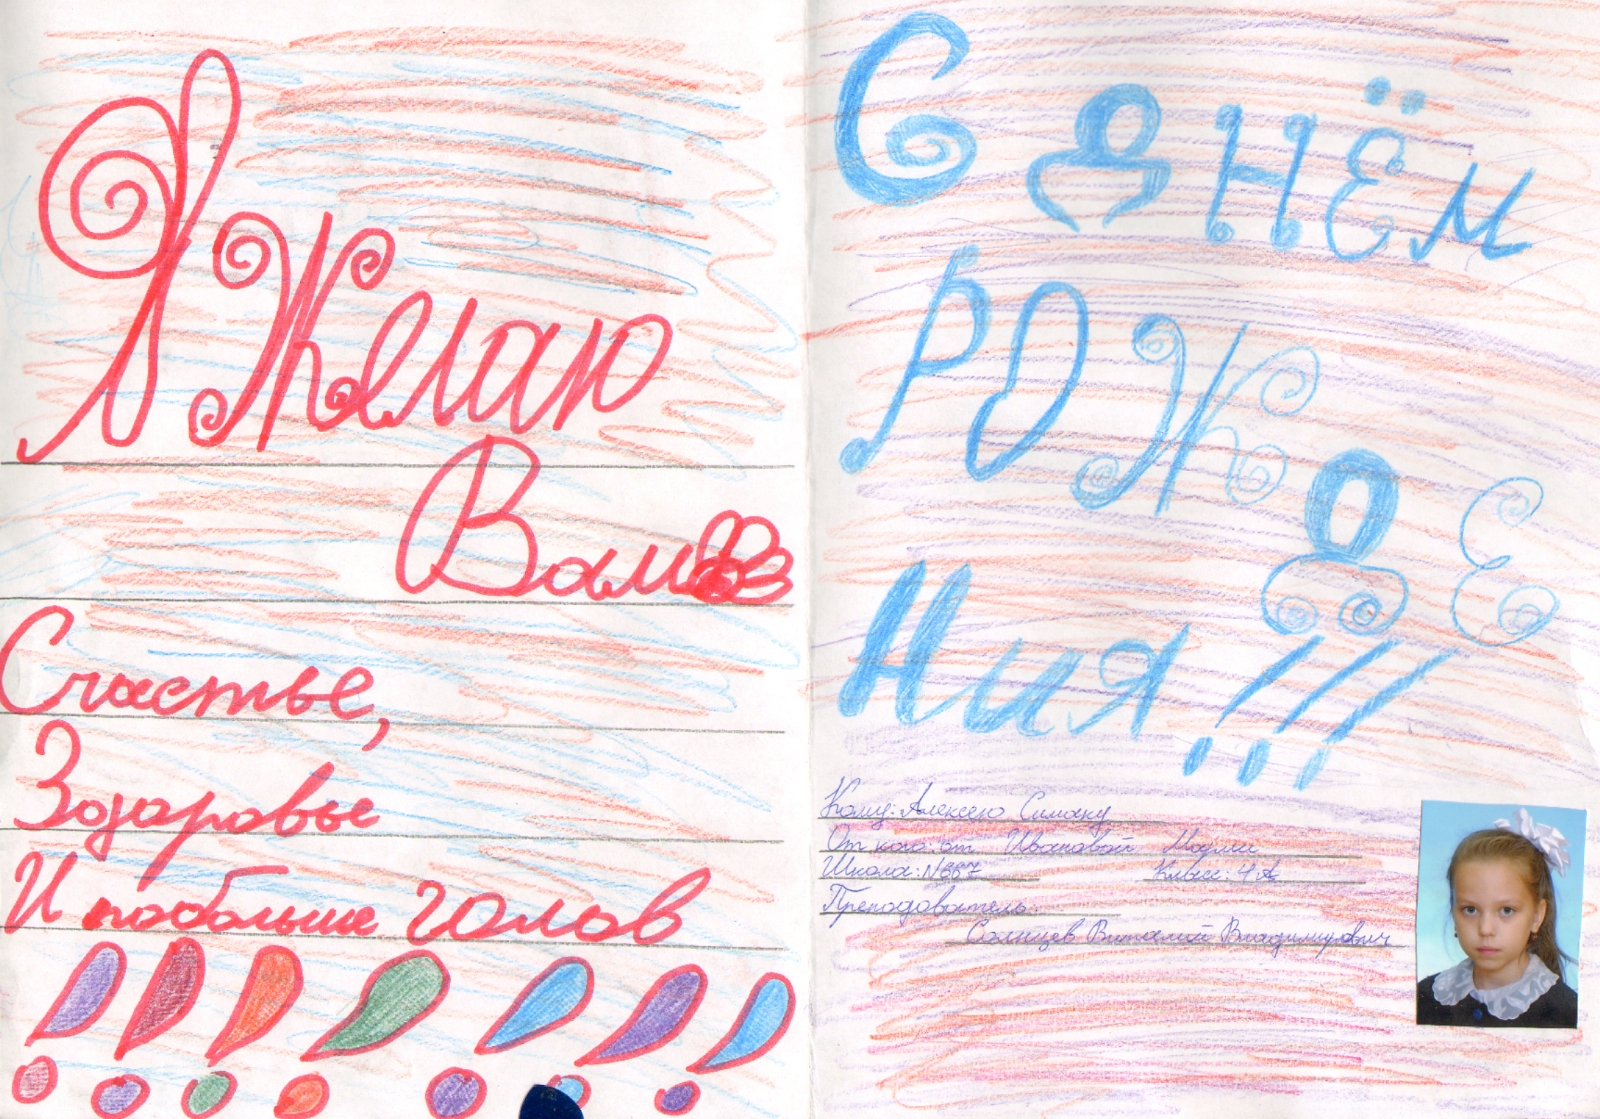 Я Желаю
Вам
Счастье,
Здоровье
И побольше голов
С днём
РОЖДЕ
Ния!!!
Кому: Алексею Симаку
От кого: от Ивановой Марии
Школа: N667 Класс: 4 А
Преподователь:
Солнцев Виталий Владимирович